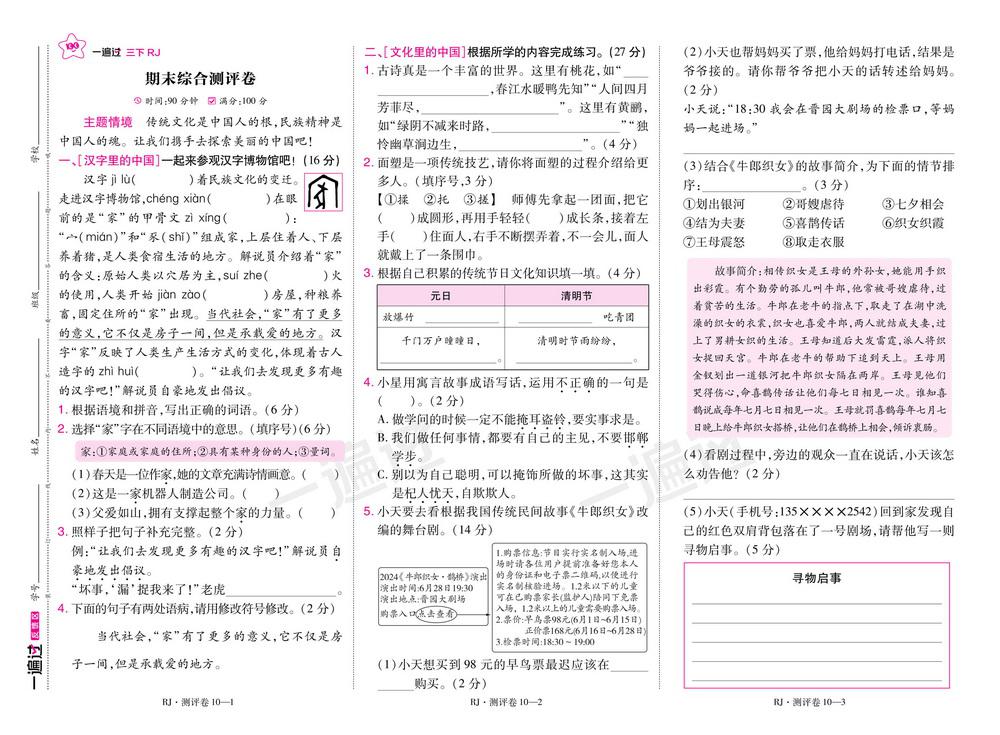 100
一遍过 三下 RJ
期末综合测评卷
时间:90 分钟 满分:100 分
主题情境 传统文化是中国人的根,民族精神是
中国人的魂。让我们携手去探索美丽的中国吧!
一、[汉字里的中国]一起来参观汉字博物馆吧!(16 分)
汉字 jì lù( )着民族文化的变迁。
走进汉字博物馆,chéng xiàn( )在眼
前的是“家”的甲骨文 zì xíng( ):
“宀(mián)”和“豕(shǐ)”组成家,上层住着人、下层
养着猪,是人类食宿生活的地方。解说员介绍着“家”
的含义:原始人类以穴居为主,suí zhe( )火
的使用,人类开始 jiàn zào( )房屋,种粮养
畜,固定住所的“家”出现。当代社会,“家”有了更多
的意义,它不仅是房子一间,但是承载爱的地方。汉
字“家”反映了人类生产生活方式的变化,体现着古人
造字的 zhì huì( )。“让我们去发现更多有趣
的汉字吧!”解说员自豪地发出倡议。
1. 根据语境和拼音,写出正确的词语。(6 分)
2. 选择“家”字在不同语境中的意思。(填序号)(6 分)
家:①家庭或家庭的住所;②具有某种身份的人;③量词。
(1)春天是一位作家,她的文章充满诗情画意。( )
(2)这是一家机器人制造公司。( )
(3)父爱如山,拥有支撑起整个家的力量。( )
3. 照样子把句子补充完整。(2 分)
例:“让我们去发现更多有趣的汉字吧!”解说员自
豪地发出倡议。
“坏事,‘漏’捉我来了!”老虎________________。
4. 下面的句子有两处语病,请用修改符号修改。(2 分)
当代社会,“家”有了更多的意义,它不仅是房
子一间,但是承载爱的地方。
RJ·测评卷 10—1
学校
班级
姓名
学号
一遍过
反馈区
二、[文化里的中国]根据所学的内容完成练习。(27 分)
1. 古诗真是一个丰富的世界。这里有桃花,如“____
________________,春江水暖鸭先知”“人间四月
芳菲尽,________________”。这里有黄鹂,
如“绿阴不减来时路,________________”“独
怜幽草涧边生,________________”。(4 分)
2. 面塑是一项传统技艺,请你将面塑的过程介绍给更
多人。(填序号,3 分)
【①揉 ②托 ③搓】 师傅先拿起一团面,把它
( )成圆形,再用手轻轻( )成长条,接着左
手( )住面人,右手不断摆弄着,不一会儿,面人
就戴上了一条围巾。
3. 根据自己积累的传统节日文化知识填一填。(4 分)
元日 清明节
放爆竹 ________ ________ 吃青团
千门万户曈曈日, 清明时节雨纷纷,
________________。 ________________。
4. 小星用寓言故事成语写话,运用不正确的一句是
( )。(2 分)
A. 做学问的时候一定不能掩耳盗铃,要实事求是。
B. 我们做任何事情,都要有自己的主见,不要邯郸
学步。
C. 别以为自己聪明,可以掩饰所做的坏事,这其实
是杞人忧天,自欺欺人。
5. 小天要去看根据我国传统民间故事《牛郎织女》改
编的舞台剧。(14 分)
2024《牛郎织女·鹊桥》演出
演出时间:6月28日19:30
演出地点:晋园大剧场
购票入口 点击查看
1.购票信息:节目实行实名制入场,进
场时请各位用户提前准备好您本人
的身份证和电子票二维码,以便进行
实名制核验进场。1.2米以下的儿童
可在已购票家长(监护人)陪同下免票
入场，1.2米以上的儿童需要购票入场。
2.票价:早鸟票98元(6月1日~6月15日)
正价票168元(6月16日~6月28日)
3.检票时间:18:30 ~ 19:00
(1)小天想买到 98 元的早鸟票最迟应该在______
______购买。(2 分)
RJ·测评卷 10—2
(2)小天也帮妈妈买了票,他给妈妈打电话,结果是
爷爷接的。请你帮爷爷把小天的话转述给妈妈。
(2 分)
小天说:“18:30 我会在晋园大剧场的检票口,等妈
妈一起进场。”
(3)结合《牛郎织女》的故事简介,为下面的情节排
序:________________。(3 分)
①划出银河 ②哥嫂虐待 ③七夕相会
④结为夫妻 ⑤喜鹊传话 ⑥织女织霞
⑦王母震怒 ⑧取走衣服
故事简介:相传织女是王母的外孙女,她能用手织
出彩霞。有个勤劳的孤儿叫牛郎,他常被哥嫂虐待,过
着贫苦的生活。牛郎在老牛的指点下,取走了在湖中洗
澡的织女的衣裳,织女也喜爱牛郎,两人就结成夫妻,过
上了男耕女织的生活。王母知道后大发雷霆,派人将织
女捉回天宫。牛郎在老牛的帮助下追到天上。王母用
金钗划出一道银河把牛郎织女隔在两岸。王母见他们
哭得伤心,命喜鹊传话让他们每七日相见一次。谁知喜
鹊说成每年七月七日相见一次。王母就罚喜鹊每年七月七
日晚上给牛郎织女搭桥,让他们在鹊桥上相会,倾诉衷肠。
(4)看剧过程中,旁边的观众一直在说话,小天该怎
么劝告他? (2 分)
(5)小天(手机号:135××××2542)回到家发现自
己的红色双肩背包落在了一号剧场,请帮他写一则
寻物启事。(5 分)
寻物启事
RJ·测评卷 10—3
一遍过
一遍过